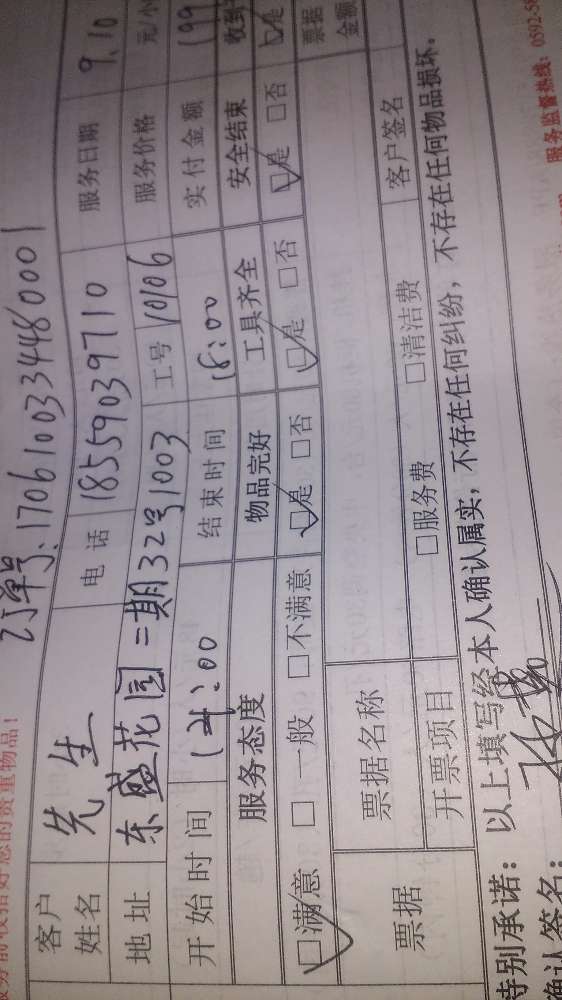 务前收拾好您的贵重物品！
订单号:1706100334480001
客户姓名 先生 电话 18559039710 服务日期 9.10
地址 东盛花园二期32号1003 工号 10106 服务价格 元/小
开始时间 14:00 结束时间 18:00 实付金额 199
服务态度 物品完好 工具齐全 安全结束 收到
□满意 □一般 □不满意 □是 □否 □是 □否 □是 □否 □是
票据 票据名称 票据金额
开票项目 □服务费 □清洁费 客户签名
特别承诺：以上填写经本人确认属实，不存在任何纠纷，不存在任何物品损坏。
确认签名：
服务监督热线：0592-58